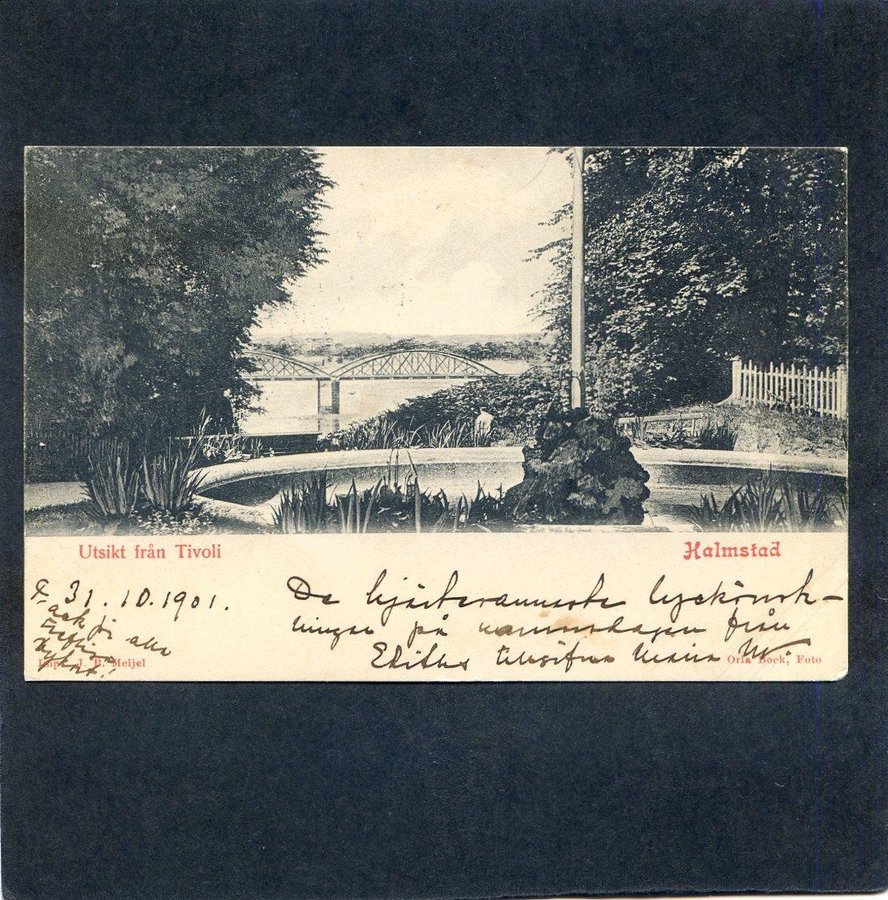 Utsikt från Tivoli
Halmstad
31.10.1901.
De hjärtevarmaste lyckönsk-
ningar på namnsdagen från
Ediths Maria W.
Imp. J. B. Meijel
Orla Bock, Foto